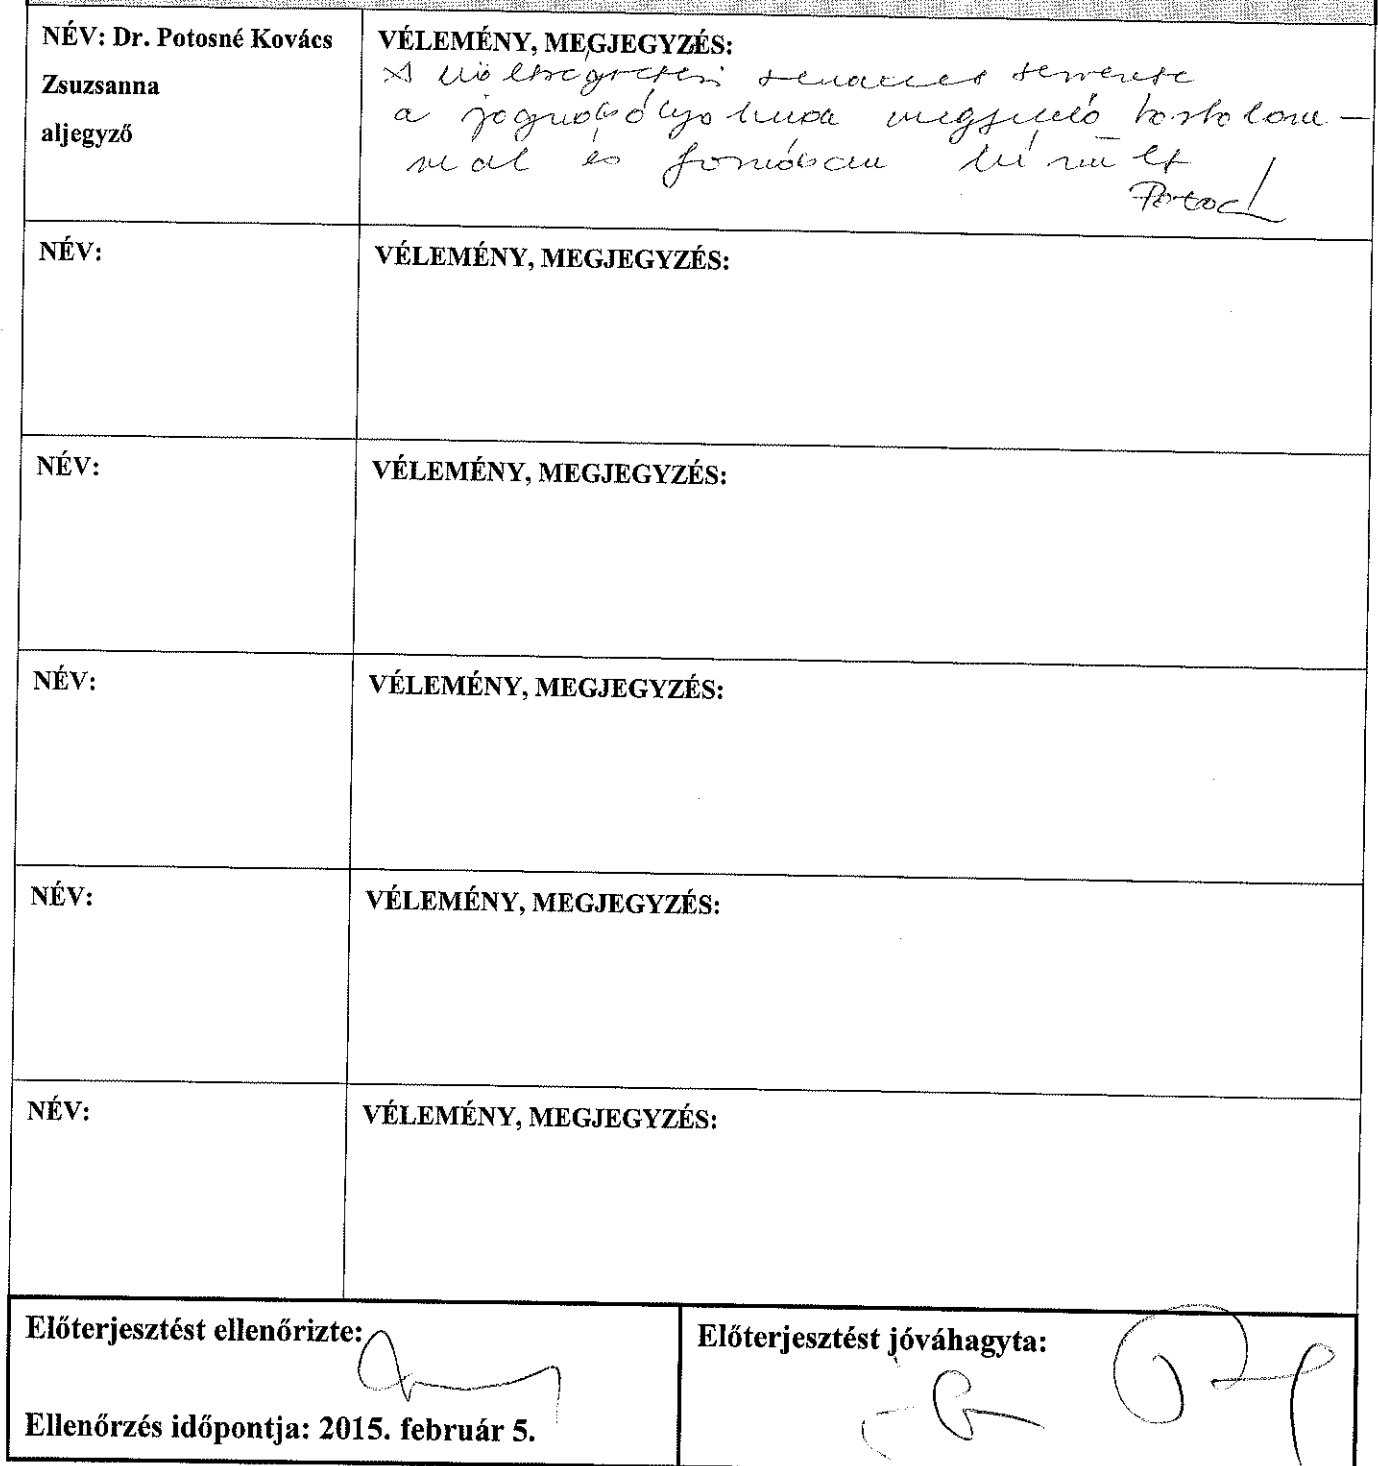 NÉV: Dr. Potosné Kovács
Zsuzsanna
aljegyző
VÉLEMÉNY, MEGJEGYZÉS:
A költségvetési rendelet tervezete
a jogszabályoknak megfelelő tartalom-
mal és formában készült
NÉV:
VÉLEMÉNY, MEGJEGYZÉS:
NÉV:
VÉLEMÉNY, MEGJEGYZÉS:
NÉV:
VÉLEMÉNY, MEGJEGYZÉS:
NÉV:
VÉLEMÉNY, MEGJEGYZÉS:
NÉV:
VÉLEMÉNY, MEGJEGYZÉS:
Előterjesztést ellenőrizte:
Ellenőrzés időpontja: 2015. február 5.
Előterjesztést jóváhagyta: